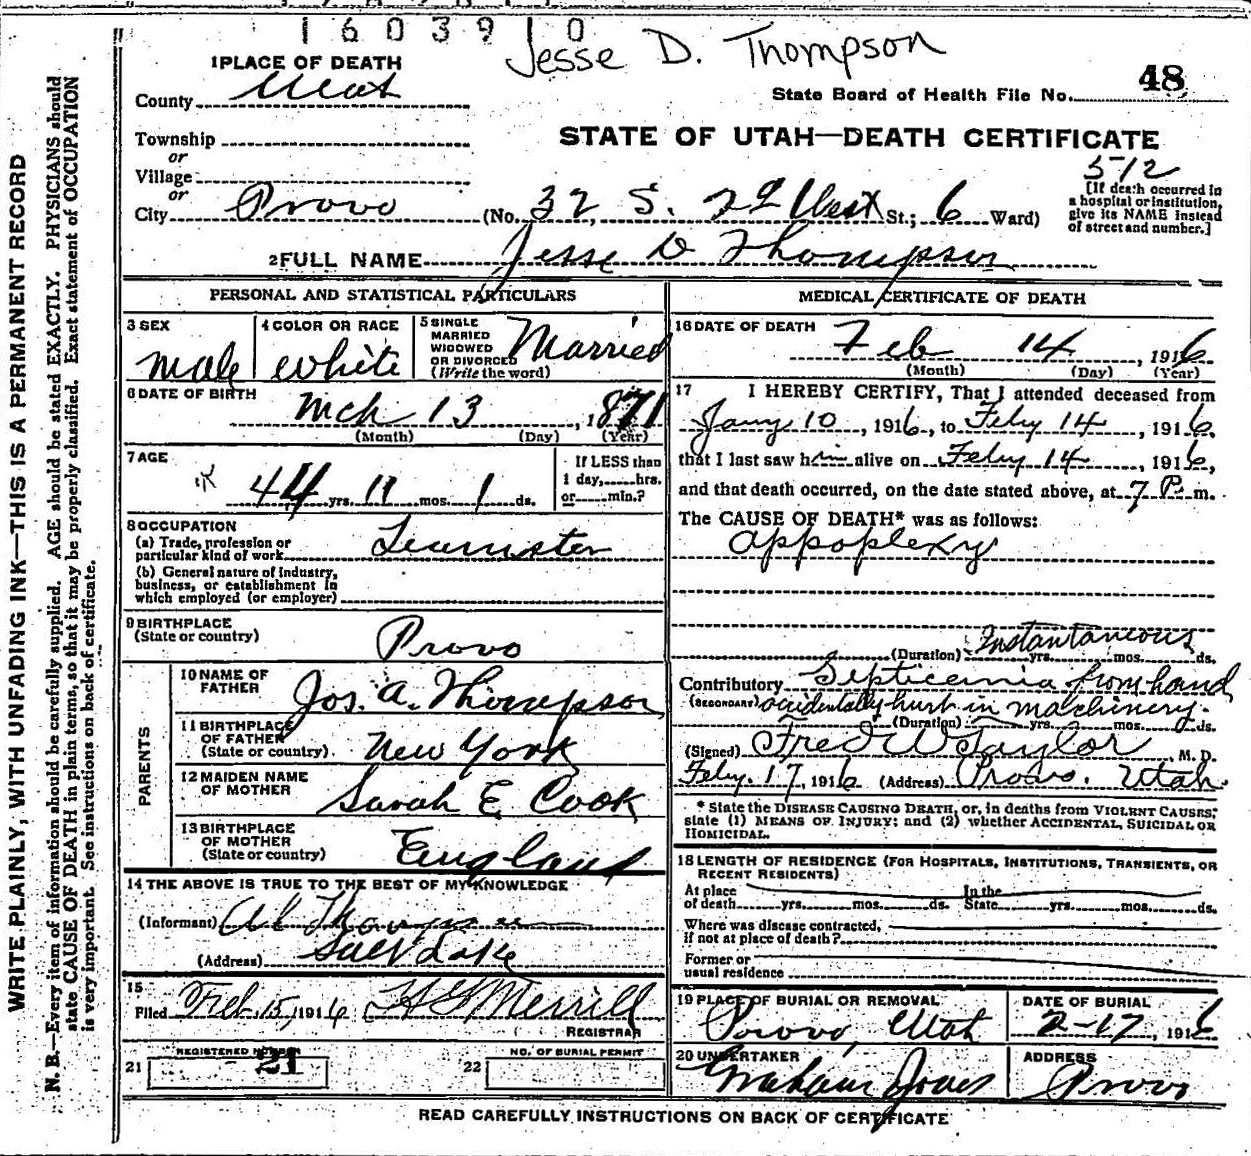 1603910
Jesse D. Thompson
48
1 PLACE OF DEATH
County Utah
State Board of Health File No.
Township
or
Village
or
City Provo (No. 32 S. 2d West St.; 6 Ward)
STATE OF UTAH—DEATH CERTIFICATE
512
[If death occurred in
a hospital or institution,
give its NAME instead
of street and number.]
2 FULL NAME Jesse D Thompson
PERSONAL AND STATISTICAL PARTICULARS
3 SEX
male
4 COLOR OR RACE
White
5 SINGLE
MARRIED
WIDOWED
OR DIVORCED
(Write the word)
Married
6 DATE OF BIRTH
Mch 13, 1871
(Month) (Day) (Year)
7 AGE
44 yrs. 11 mos. 1 ds.
If LESS than
1 day,......hrs.
or......min.?
8 OCCUPATION
(a) Trade, profession or
particular kind of work Teamster
(b) General nature of industry,
business, or establishment in
which employed (or employer)
9 BIRTHPLACE
(State or country)
Provo
PARENTS
10 NAME OF
FATHER
Jos. A. Thompson
11 BIRTHPLACE
OF FATHER
(State or country)
New York
12 MAIDEN NAME
OF MOTHER
Sarah E Cook
13 BIRTHPLACE
OF MOTHER
(State or country)
England
14 THE ABOVE IS TRUE TO THE BEST OF MY KNOWLEDGE
(Informant)
(Address) Salt Lake
15
Filed Feb. 15, 1916 H G Merrill
REGISTRAR
21 REGISTERED NUMBER
21
22 NO. OF BURIAL PERMIT
MEDICAL CERTIFICATE OF DEATH
16 DATE OF DEATH
Feb 14, 1916
(Month) (Day) (Year)
17 I HEREBY CERTIFY, That I attended deceased from
Jany 10, 1916, to Feby 14, 1916,
that I last saw him alive on Feby 14, 1916,
and that death occurred, on the date stated above, at 7 P. m.
The CAUSE OF DEATH* was as follows:
appoplexy
Instantaneous
(Duration) yrs. mos. ds.
Contributory Septicemia from hand
(SECONDARY) accidentally hurt in machinery.
(Duration) yrs. mos. ds.
(Signed) Fred W Taylor, M. D.
Feby. 17, 1916 (Address) Provo. Utah.
* State the DISEASE CAUSING DEATH, or, in deaths from VIOLENT CAUSES,
state (1) MEANS OF INJURY; and (2) whether ACCIDENTAL, SUICIDAL OR
HOMICIDAL.
18 LENGTH OF RESIDENCE (FOR HOSPITALS, INSTITUTIONS, TRANSIENTS, OR
RECENT RESIDENTS)
At place In the
of death yrs. mos. ds. State yrs. mos. ds.
Where was disease contracted,
if not at place of death?
Former or
usual residence
19 PLACE OF BURIAL OR REMOVAL
Provo, Utah
DATE OF BURIAL
2-17, 1916
20 UNDERTAKER
Graham Jones
ADDRESS
Provo
READ CAREFULLY INSTRUCTIONS ON BACK OF CERTIFICATE
WRITE PLAINLY, WITH UNFADING INK—THIS IS A PERMANENT RECORD
N. B.—Every item of information should be carefully supplied. AGE should be stated EXACTLY. PHYSICIANS should
state CAUSE OF DEATH in plain terms, so that it may be properly classified. Exact statement of OCCUPATION
is very important. See instructions on back of certificate.